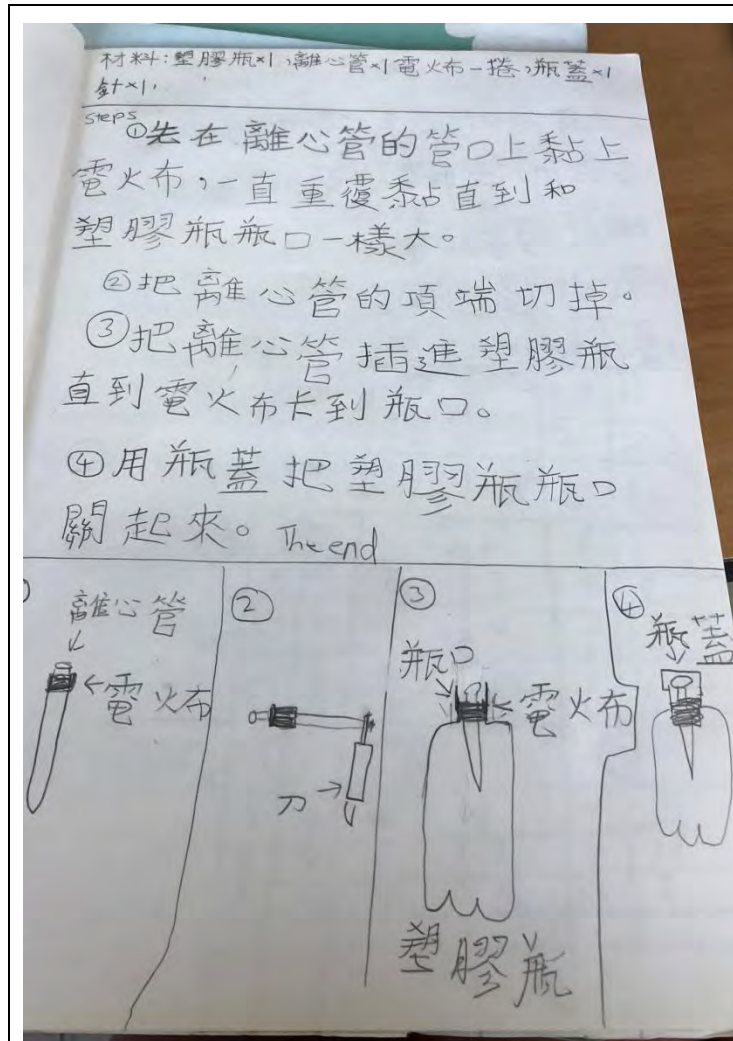 材料:塑膠瓶×1,離心管×1電火布一捲,瓶蓋×1
針×1,
steps
①先在離心管的管口上黏上
電火布,一直重覆黏直到和
塑膠瓶瓶口一樣大。
②把離心管的項端切掉。
③把離心管插進塑膠瓶
直到電火布卡到瓶口。
④用瓶蓋把塑膠瓶瓶口
關起來。The end
離心管
電火布
②
刀
③
瓶口
電火布
塑膠瓶
④
瓶蓋